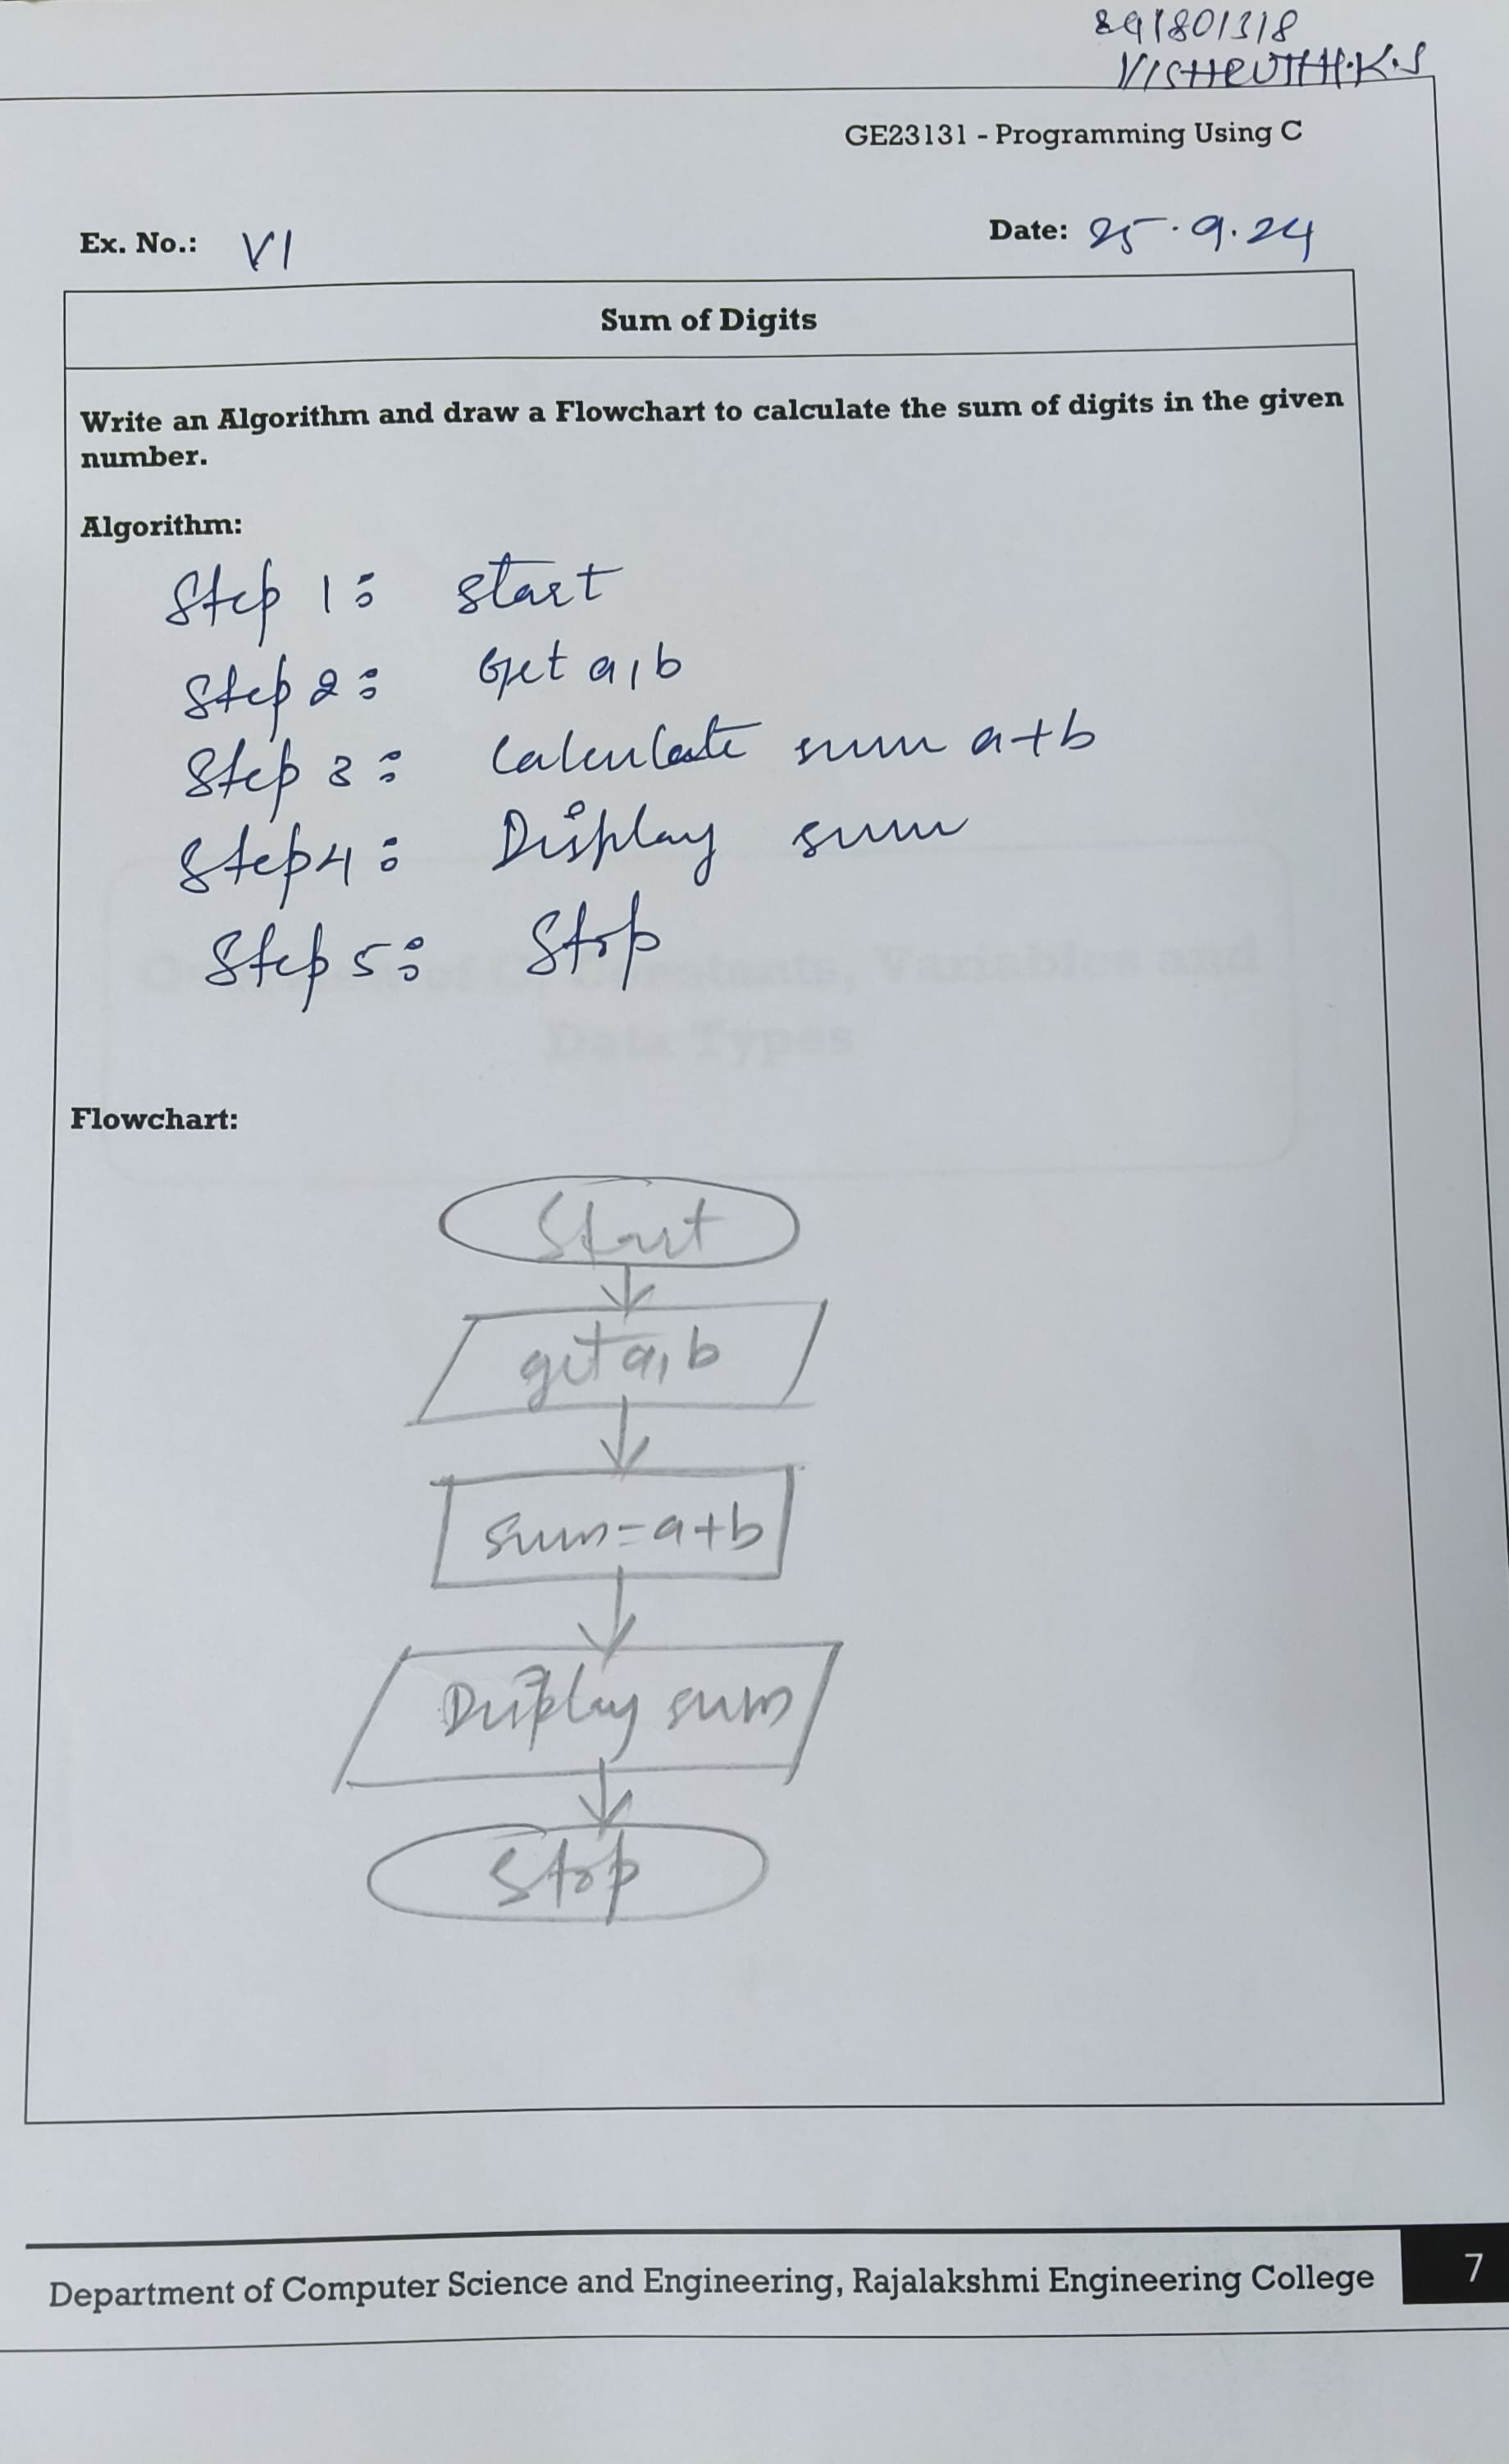 241801318
VISHRUTH.K.S
GE23131 - Programming Using C
Ex. No.: VI
Date: 25.9.24
Sum of Digits
Write an Algorithm and draw a Flowchart to calculate the sum of digits in the given
number.
Algorithm:
Step 1: start
Step 2: Get a,b
Step 3: Calculate sum a+b
Step 4: Display sum
Step 5: Stop
Overview of C, Constants, Variables and
Data Types
Flowchart:
Start
get a, b
sum=a+b
Display sum
Stop
Department of Computer Science and Engineering, Rajalakshmi Engineering College
7